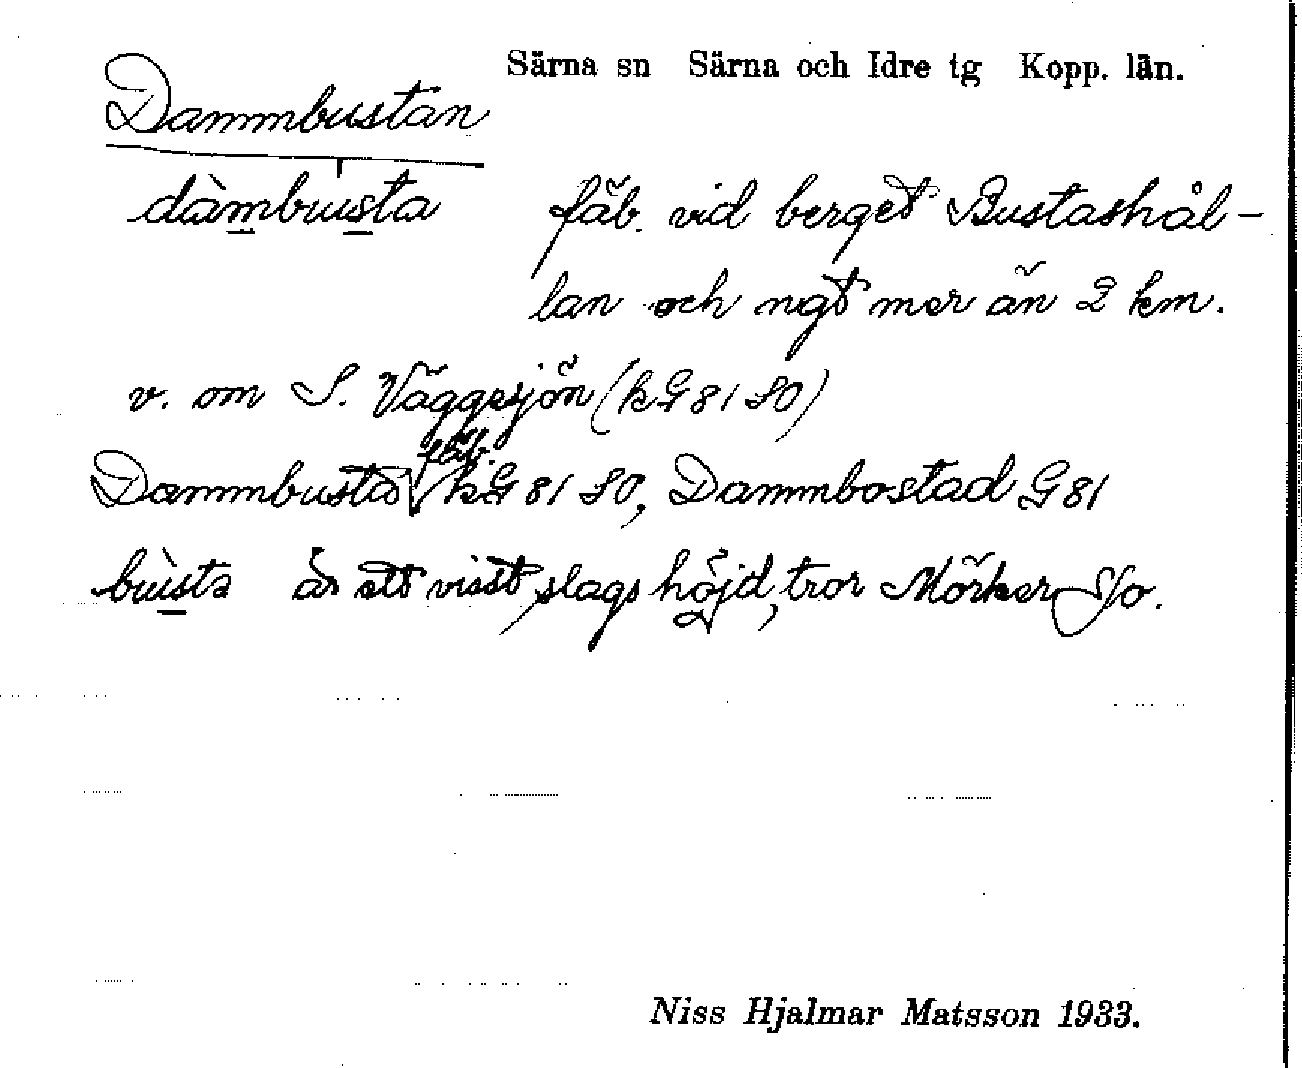 Särna sn Särna och Idre tg Kopp. län.
Dammbustan
dàmbùsta fäb. vid berget Bustashål-
lan och ngt mer än 2 km.
v. om S. Väggesjön (kG 81 SO)
fäb.
Dammbusta kG 81 SO, Dammbostad G 81
bùsta är ett visst slags höjd, tror Mörker Jo.
Niss Hjalmar Matsson 1933.